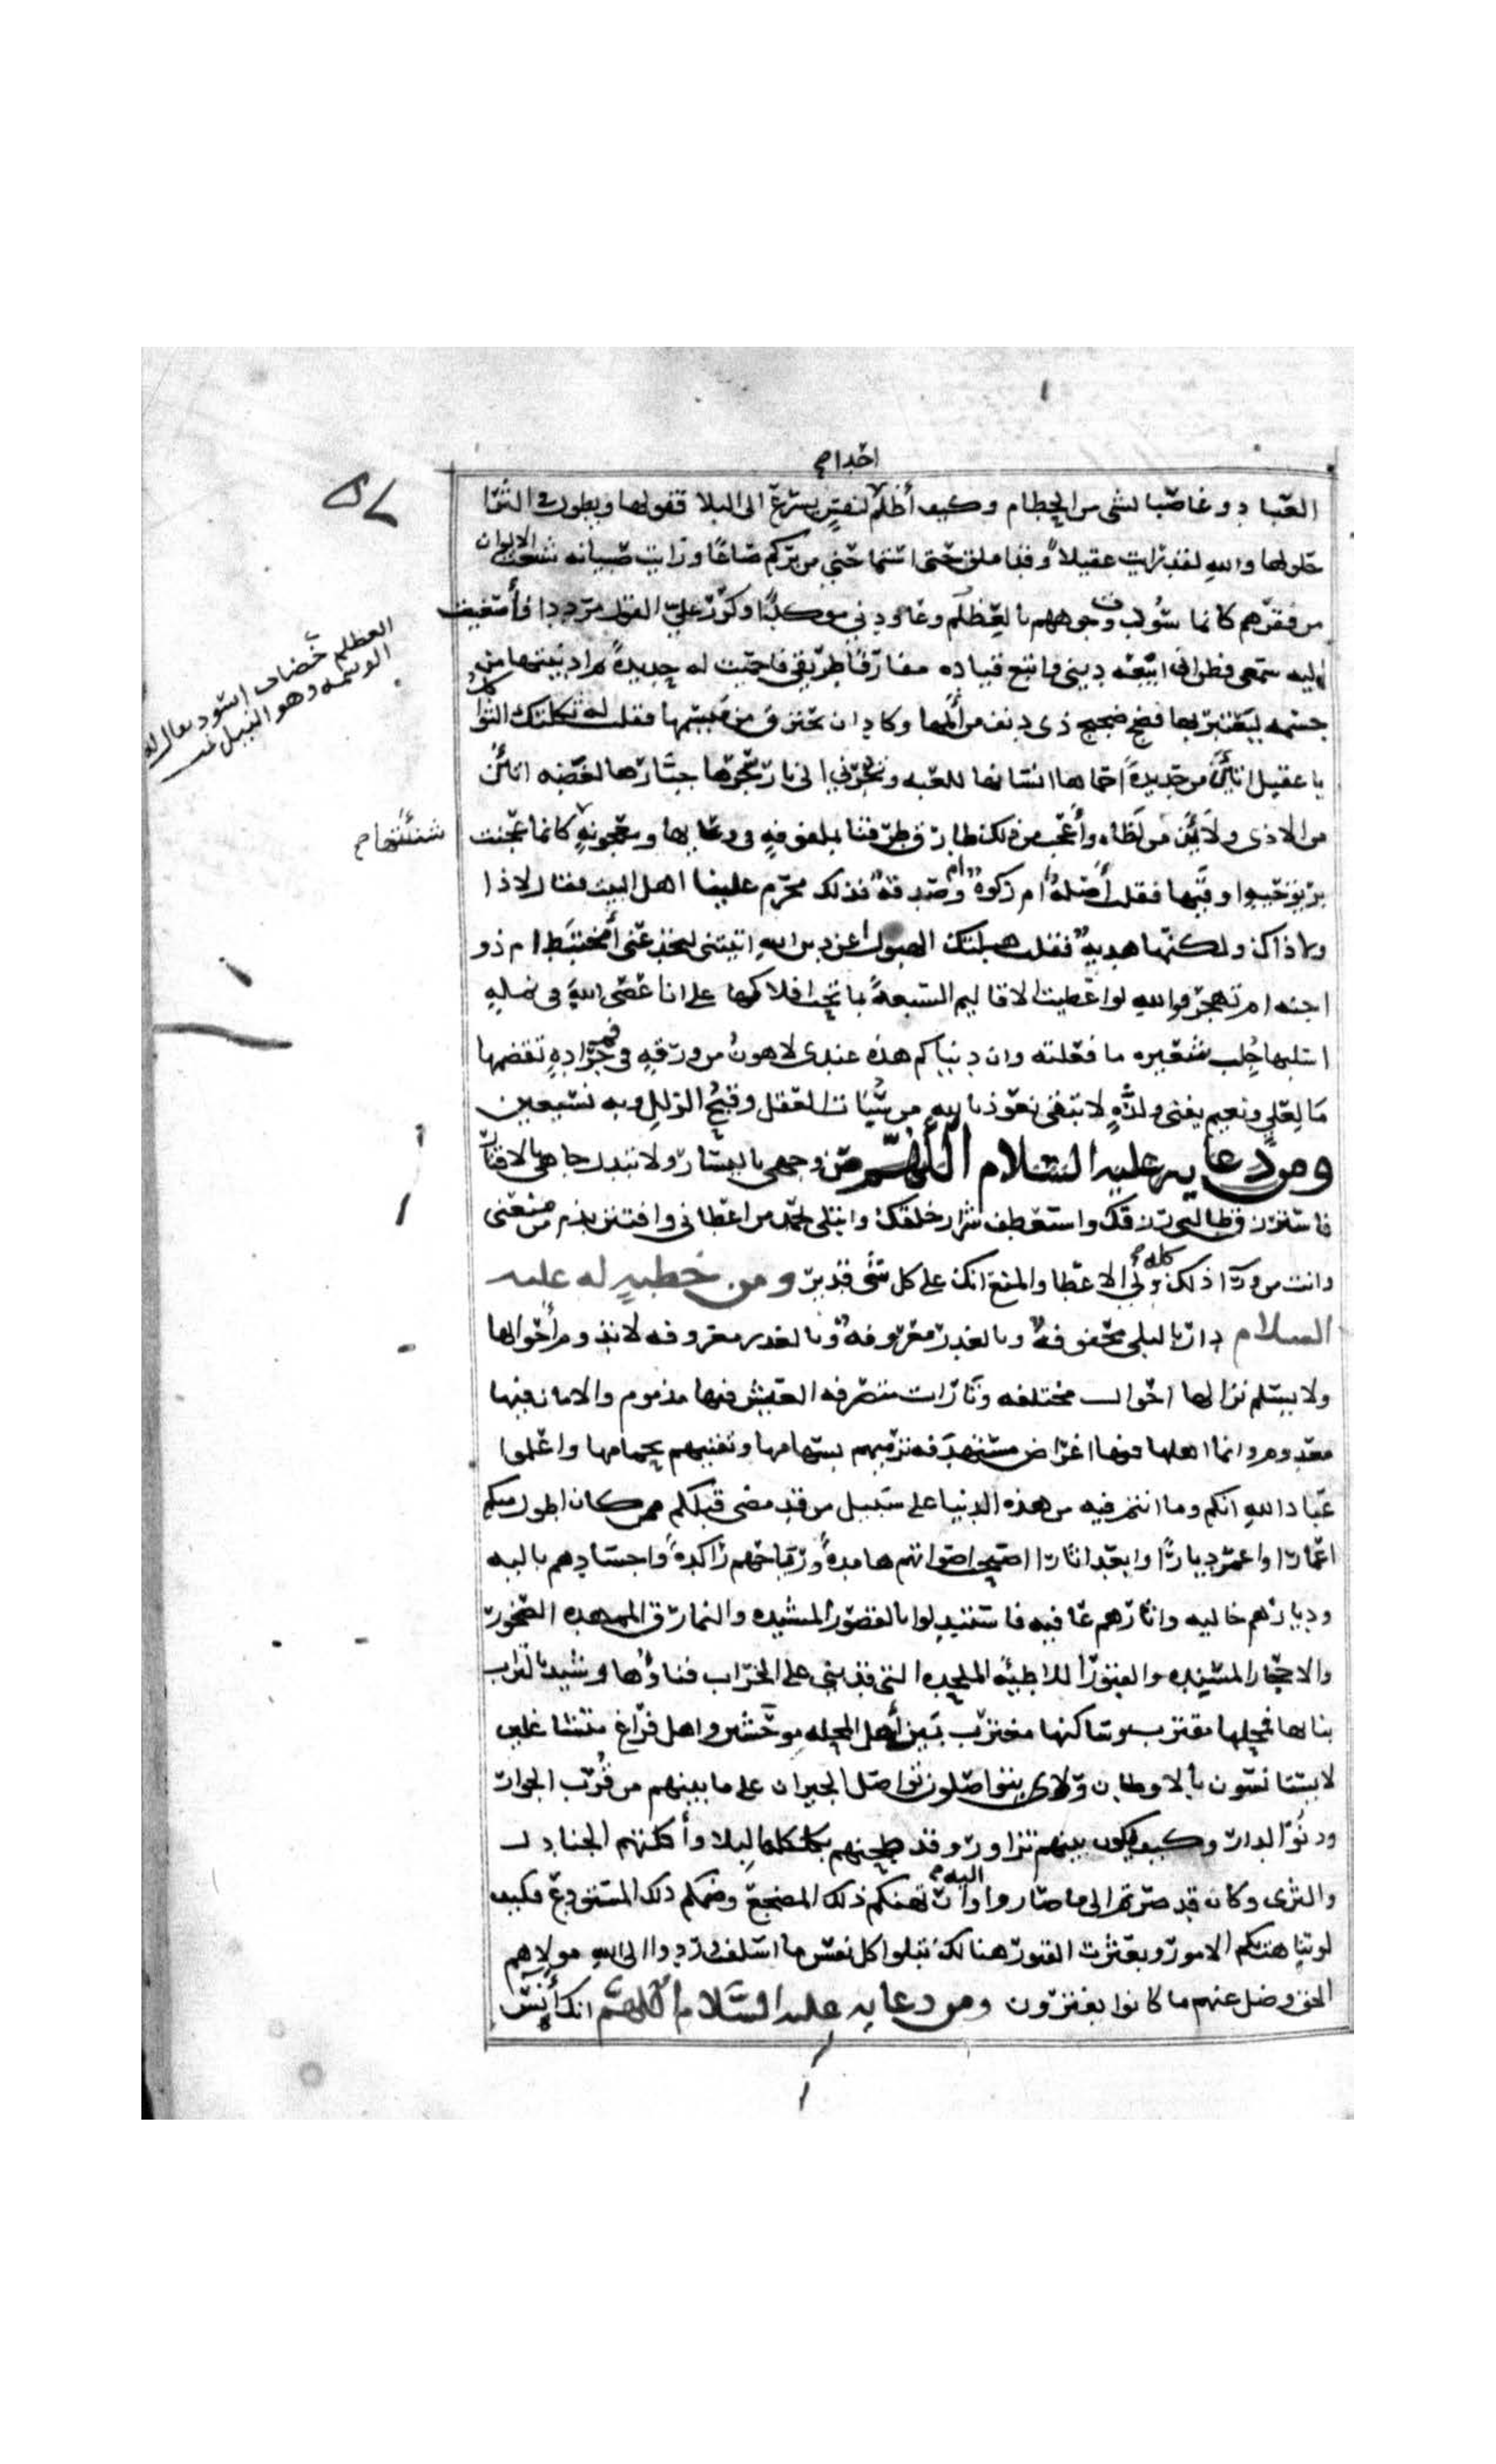 احدا صح
العباد وغاصبا لشى من الحطام وكيف أظلم لنفس يسرع الى البلا قفولها ويطول فى الثرا
حلولها والله لقد رايت عقيلاً وقد املق حتى استماحنى من بركم صاعًا ورايت صبيانه شعث الالوان
من فقرهم كانما سُودت وجوههم بالعِظلم وعاودنى موكدًا وكرّر علىّ القول مرددا فأصغيت
اليه سمعى فظن انى ابيعه دينى واتبع قياده مفارقا طريقى فاحميت له حديدةً ثم ادنيتها من
جسمه ليعتبر بها فضج ضجيج ذى دنف من ألمها وكاد ان يحترق من ميسمها فقلت له ثكلتك الثواكل
يا عقيل اتأن من حديدة احماها انسانها للعبه وتجرنى الى نار سجرها جبارها لغضبه اتأن
من الاذى ولا أئن من لظاه وأعجب من ذلك طارق طرقنا بملفوفه فى وعايها ومعجونه كانما عجنت
شنئتها صح
بريق حيه او قيها فقلت أصلهٌ ام زكوة ام صدقة فذلك محرم علينا اهل البيت فقال لا ذا
ولا ذاك ولكنها هديه فقلت هبلتك الهبول اعن دين الله اتيتنى لتخدعنى أمختبط ام ذو
جنه ام تهجر فوالله لو اعطيت الاقاليم السبعة بما تحت افلاكها على ان اعصى الله فى نمله
اسلبها جلب شعيره ما فعلته وان دنياكم هذه عندى لاهون من ورقه فى فم جراده تقضمها
ما لعلى ونعيم يفنى ولذه لا تبقى نعوذ بالله من سُبات العقل وقبح الزلل وبه نستعين
ومن دعا به عليه السلام اللهم صن وجهى باليسار ولا تبدل جاهى بالاقتار
فاسترزق طالبى رزقك واستعطف شرار خلقك وابتلى بحمد من اعطانى وافتتن بذم من منعنى
وانت من ورآ ذلك كله ولى الاعطا والمنع انك على كل شى قدير ومن خطبه له عليه
السلام دار بالبلى محفوفه وبالغدر معروفه لا تدوم أحوالها
ولا يسلم نزالها احوال مختلفه وتارات متصرفه العيش فيها مذموم والامان فيها
معدوم وانما اهلها فيها اغراض مستهدفه ترميهم بسهامها وتفنيهم بحمامها واعلموا
عباد الله انكم وما انتم فيه من هذه الدنيا على سبيل من قد مضى قبلكم ممن كان اطول منكم
اعمارا واعمر ديارًا وابعد اثارا اصبحت اصواتهم هامدة ورياحهم راكدة واجسادهم باليه
وديارهم خاليه واثارهم عافيه فاستبدلوا بالقصور المشيده والنمارق الممهده الصخور
والاحجار المسنده والقبور اللاطئة الملحده التى قد بنى على الخراب فناؤها وشيد بالتراب
بناها فمحلها مقترب وساكنها مغترب بين أهل محله موحشين واهل فراغ متشاغلين
لا يستانسون بالاوطان ولا يتواصلون تواصل الجيران على ما بينهم من قرب الجوار
ودنو الدار وكيف يكون بينهم تزاور وقد طحنهم بكلكله البلا وأكلتهم الجنادل
والثرى وكان قد صرتم الى ما صاروا اليه وارتهنكم ذلك المضجع وضمكم ذلك المستودع فكيف
لو تناهت بكم الامور وبعثرت القبور هنالك تبلوا كل نفس ما اسلفت وردوا الى الله مولاهم
الحق وضل عنهم ما كانوا يفترون ومن دعا به عليه السلام اللهم انك أنس
العظلم خضاب اسود
الوسمه وهو النيل